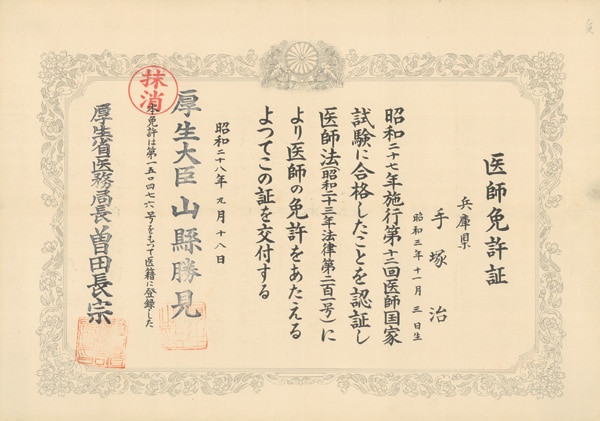 医師免許証
兵庫県
手塚治
昭和三年十一月三日生
昭和二十七年施行第十三回医師国家
試験に合格したことを認証し
医師法(昭和二十三年法律第二百一号)に
より医師の免許をあたえる
よつてこの証を交付する
昭和二十八年九月十八日
厚生大臣山縣勝見
抹消
本免許は第一五〇四七六号をもつて医籍に登録した
厚生省医務局長曽田長宗